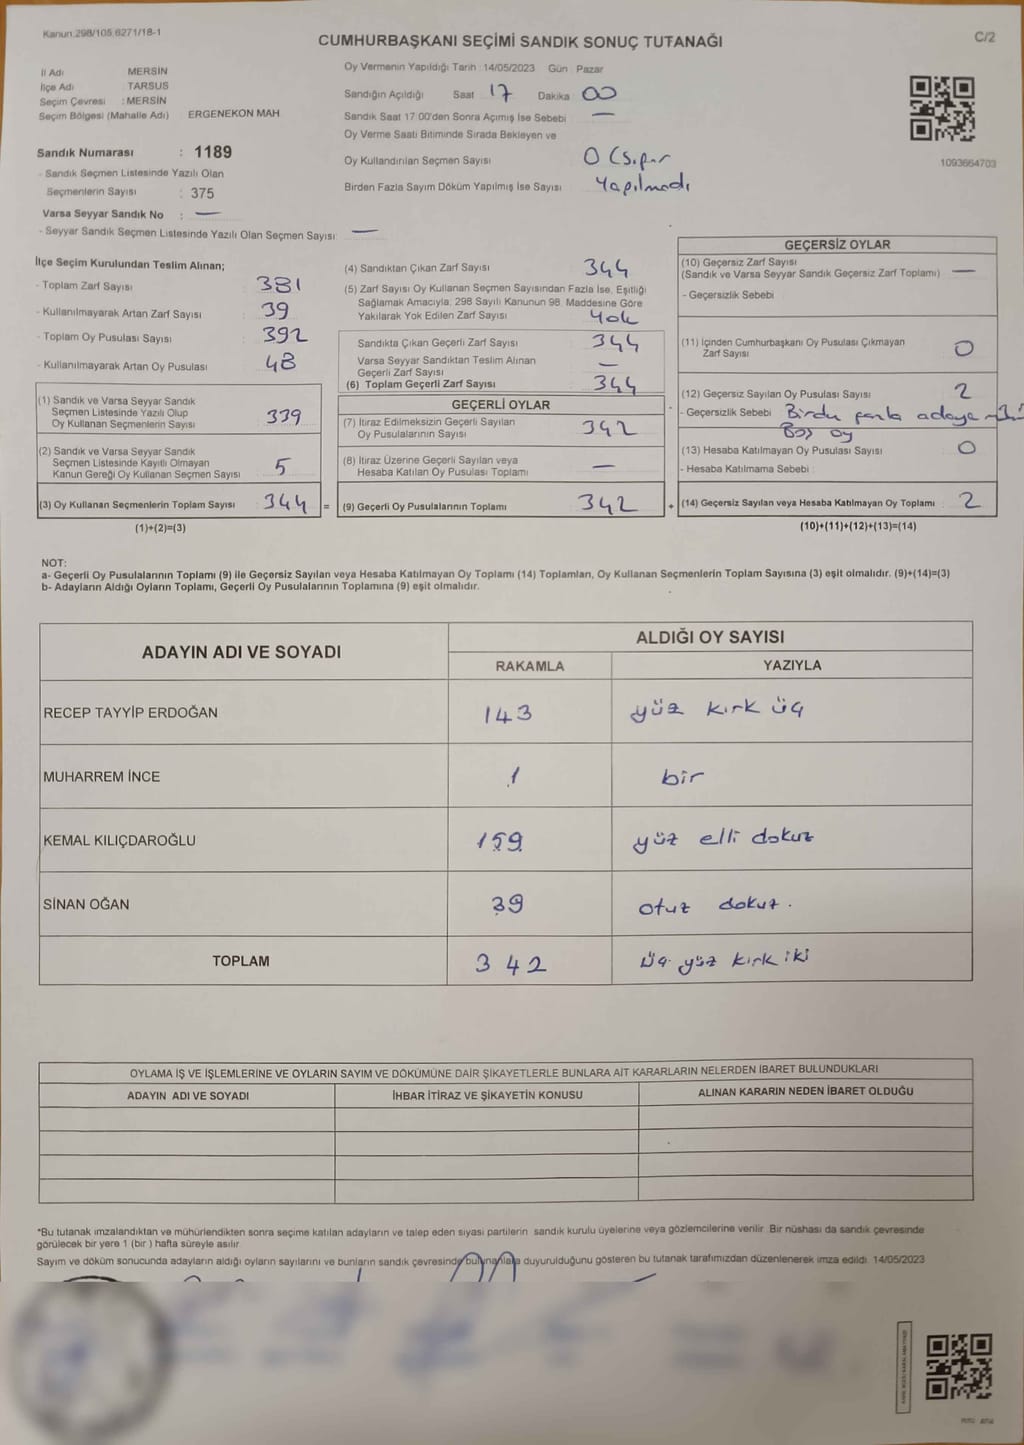 Kanun.298/105,6271/18-1
C/2
CUMHURBAŞKANI SEÇİMİ SANDIK SONUÇ TUTANAĞI
İl Adı MERSİN
İlçe Adı TARSUS
Seçim Çevresi : MERSİN
Seçim Bölgesi (Mahalle Adı) ERGENEKON MAH
Oy Vermenin Yapıldığı Tarih :14/05/2023 Gün : Pazar
Sandığın Açıldığı Saat 17 Dakika : 00
Sandık Saat 17:00'den Sonra Açımış İse Sebebi : —
Oy Verme Saati Bitiminde Sırada Bekleyen ve
Oy Kullandırılan Seçmen Sayısı 0 (Sıfır
Birden Fazla Sayım Döküm Yapılmış İse Sayısı Yapılmadı
1093664703
Sandık Numarası : 1189
- Sandık Seçmen Listesinde Yazılı Olan
Seçmenlerin Sayısı : 375
Varsa Seyyar Sandık No : —
- Seyyar Sandık Seçmen Listesinde Yazılı Olan Seçmen Sayısı: —
İlçe Seçim Kurulundan Teslim Alınan;
- Toplam Zarf Sayısı : 381
- Kullanılmayarak Artan Zarf Sayısı : 39
- Toplam Oy Pusulası Sayısı : 392
- Kullanılmayarak Artan Oy Pusulası : 48
(1) Sandık ve Varsa Seyyar Sandık
Seçmen Listesinde Yazılı Olup
Oy Kullanan Seçmenlerin Sayısı : 339
(2) Sandık ve Varsa Seyyar Sandık
Seçmen Listesinde Kayıtlı Olmayan
Kanun Gereği Oy Kullanan Seçmen Sayısı 5
(3) Oy Kullanan Seçmenlerin Toplam Sayısı : 344 =
(1)+(2)=(3)
(4) Sandıktan Çıkan Zarf Sayısı : 344
(5) Zarf Sayısı Oy Kullanan Seçmen Sayısından Fazla İse, Eşitliği
Sağlamak Amacıyla, 298 Sayılı Kanunun 98. Maddesine Göre
Yakılarak Yok Edilen Zarf Sayısı : Yok
Sandıkta Çıkan Geçerli Zarf Sayısı : 344
Varsa Seyyar Sandıktan Teslim Alınan
Geçerli Zarf Sayısı : —
(6) Toplam Geçerli Zarf Sayısı : 344
GEÇERLİ OYLAR
(7) İtiraz Edilmeksizin Geçerli Sayılan
Oy Pusulalarının Sayısı : 342
(8) İtiraz Üzerine Geçerli Sayılan veya
Hesaba Katılan Oy Pusulası Toplamı : —
(9) Geçerli Oy Pusulalarının Toplamı : 342 +
GEÇERSİZ OYLAR
(10) Geçersiz Zarf Sayısı
(Sandık ve Varsa Seyyar Sandık Geçersiz Zarf Toplamı) : —
- Geçersizlik Sebebi
(11) İçinden Cumhurbaşkanı Oy Pusulası Çıkmayan
Zarf Sayısı : 0
(12) Geçersiz Sayılan Oy Pusulası Sayısı : 2
- Geçersizlik Sebebi : Birden fazla adaya
Boş oy
(13) Hesaba Katılmayan Oy Pusulası Sayısı : 0
- Hesaba Katılmama Sebebi :
(14) Geçersiz Sayılan veya Hesaba Katılmayan Oy Toplamı : 2
(10)+(11)+(12)+(13)=(14)
NOT:
a- Geçerli Oy Pusulalarının Toplamı (9) ile Geçersiz Sayılan veya Hesaba Katılmayan Oy Toplamı (14) Toplamları, Oy Kullanan Seçmenlerin Toplam Sayısına (3) eşit olmalıdır. (9)+(14)=(3)
b- Adayların Aldığı Oyların Toplamı, Geçerli Oy Pusulalarının Toplamına (9) eşit olmalıdır.
ADAYIN ADI VE SOYADI
ALDIĞI OY SAYISI
RAKAMLA YAZIYLA
RECEP TAYYİP ERDOĞAN 143 yüz kırk üç
MUHARREM İNCE 1 bir
KEMAL KILIÇDAROĞLU 159 yüz elli dokuz
SİNAN OĞAN 39 otuz dokuz.
TOPLAM 342 üç yüz kırk iki
OYLAMA İŞ VE İŞLEMLERİNE VE OYLARIN SAYIM VE DÖKÜMÜNE DAİR ŞİKAYETLERLE BUNLARA AİT KARARLARIN NELERDEN İBARET BULUNDUKLARI
ADAYIN ADI VE SOYADI İHBAR İTİRAZ VE ŞİKAYETİN KONUSU ALINAN KARARIN NEDEN İBARET OLDUĞU
*Bu tutanak imzalandıktan ve mühürlendikten sonra seçime katılan adayların ve talep eden siyasi partilerin sandık kurulu üyelerine veya gözlemcilerine verilir. Bir nüshası da sandık çevresinde
görülecek bir yere 1 (bir ) hafta süreyle asılır.
Sayım ve döküm sonucunda adayların aldığı oyların sayılarını ve bunların sandık çevresinde bulunanlara duyurulduğunu gösteren bu tutanak tarafımızdan düzenlenerek imza edildi. 14/05/2023